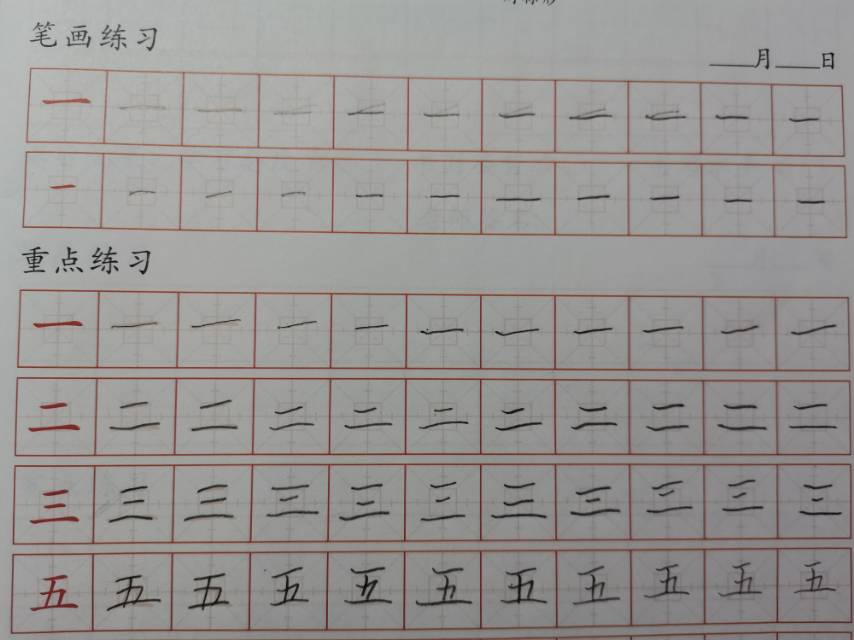 笔画练习
月 日
一 一 一 一 一 一 一 一 一 一 一
一 一 一 一 一 一 一 一 一 一 一
重点练习
一 一 一 一 一 一 一 一 一 一 一
二 二 二 二 二 二 二 二 二 二 二
三 三 三 三 三 三 三 三 三 三 三
五 五 五 五 五 五 五 五 五 五 五